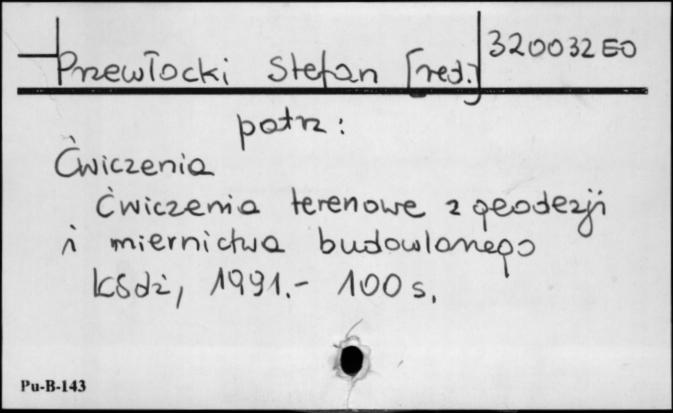 Przewłocki Stefan [red.] 320032 EO
patrz:
Ćwiczenia
Ćwiczenia terenowe z geodezji
i miernictwa budowlanego
Łódź, 1991.- 100 s.
Pu-B-143